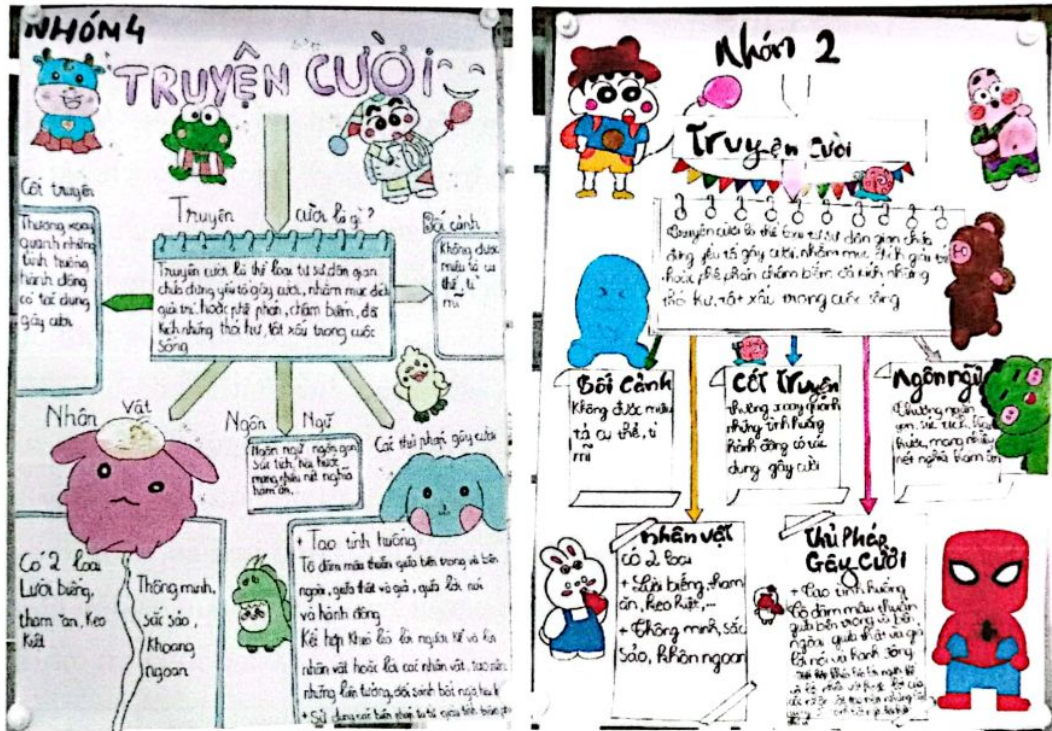 NHÓM 4
TRUYỆN CƯỜI
Cốt truyện
Thường xoay
quanh những
tình huống
hành động
có tác dụng
gây cười
Truyện cười là gì?
Truyện cười là thể loại tự sự dân gian
chứa đựng yếu tố gây cười, nhằm mục đích
giải trí, hoặc phê phán, châm biếm, đả
kích những thói hư, tật xấu trong cuộc
sống
Bối cảnh
Không được
miêu tả cụ
thể, tỉ
mĩ
Nhân vật
Có 2 loại
Lười biếng,
tham ăn, keo
kiệt
Thông minh,
sắc sảo,
khoang
ngoan
Ngôn Ngữ
Ngôn ngữ ngắn gọn
súc tích, hài hước
mang nhiều nét nghĩa
hàm ẩn...
Các thủ pháp gây cười
+ Tạo tình huống
Tô đậm mâu thuẫn giữa bên trong và bên
ngoài, giữa thật và giả, giữa lời nói
và hành động
Kết hợp khéo léo lời người kể và lời
nhân vật hoặc lời các nhân vật, tạo nên
những liên tưởng, đối sánh bất ngờ,
+ Sử dụng các biện pháp tu từ
Nhóm 2
Truyện cười
Truyện cười là thể loại tự sự dân gian chứa
đựng yếu tố gây cười, nhằm mục đích giải trí
hoặc phê phán châm biếm đả kích những
thói hư, tật xấu trong cuộc sống
Bối cảnh
Không được miêu
tả cụ thể, tỉ
mĩ
Cốt truyện
thường xoay quanh
những tình huống
hành động có tác
dụng gây cười
Ngôn ngữ
Thường ngắn
gọn, súc tích, hài
hước, mang nhiều
nét nghĩa hàm ẩn
nhân vật
có 2 loại
+ Lười biếng, tham
ăn, keo kiệt,...
+ Thông minh, sắc
sảo, khôn ngoan
Thủ Pháp
Gây Cười
+ Tạo tình huống
Tô đậm mâu thuẫn
giữa bên trong và bên
ngoài giữa thật và giả
lời nói và hành động